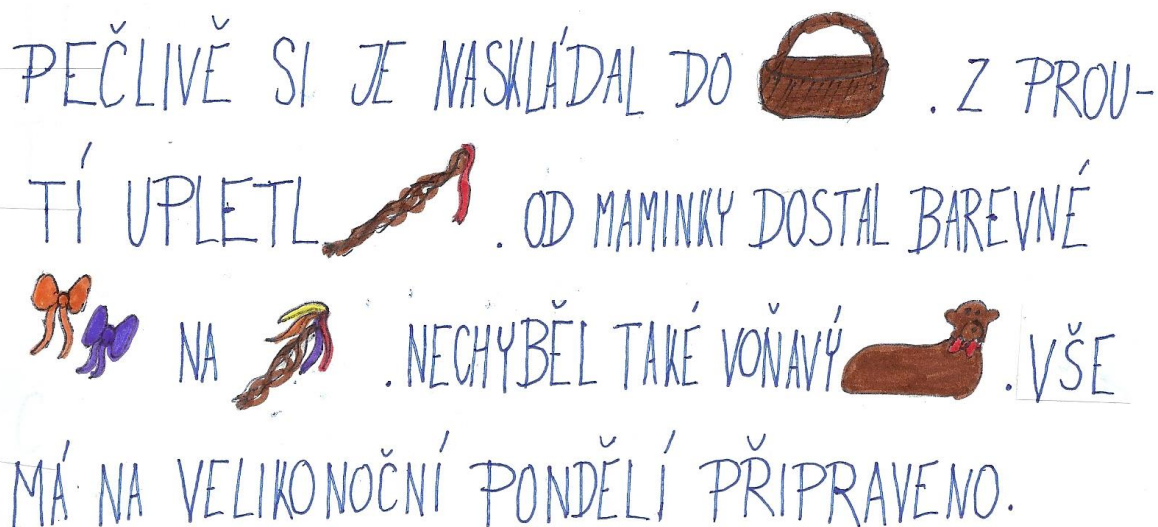 PEČLIVĚ SI JE NASKLÁDAL DO . Z PROU-
TÍ UPLETL . OD MAMINKY DOSTAL BAREVNÉ
NA . NECHYBĚL TAKÉ VOŇAVÝ . VŠE
MÁ NA VELIKONOČNÍ PONDĚLÍ PŘIPRAVENO.